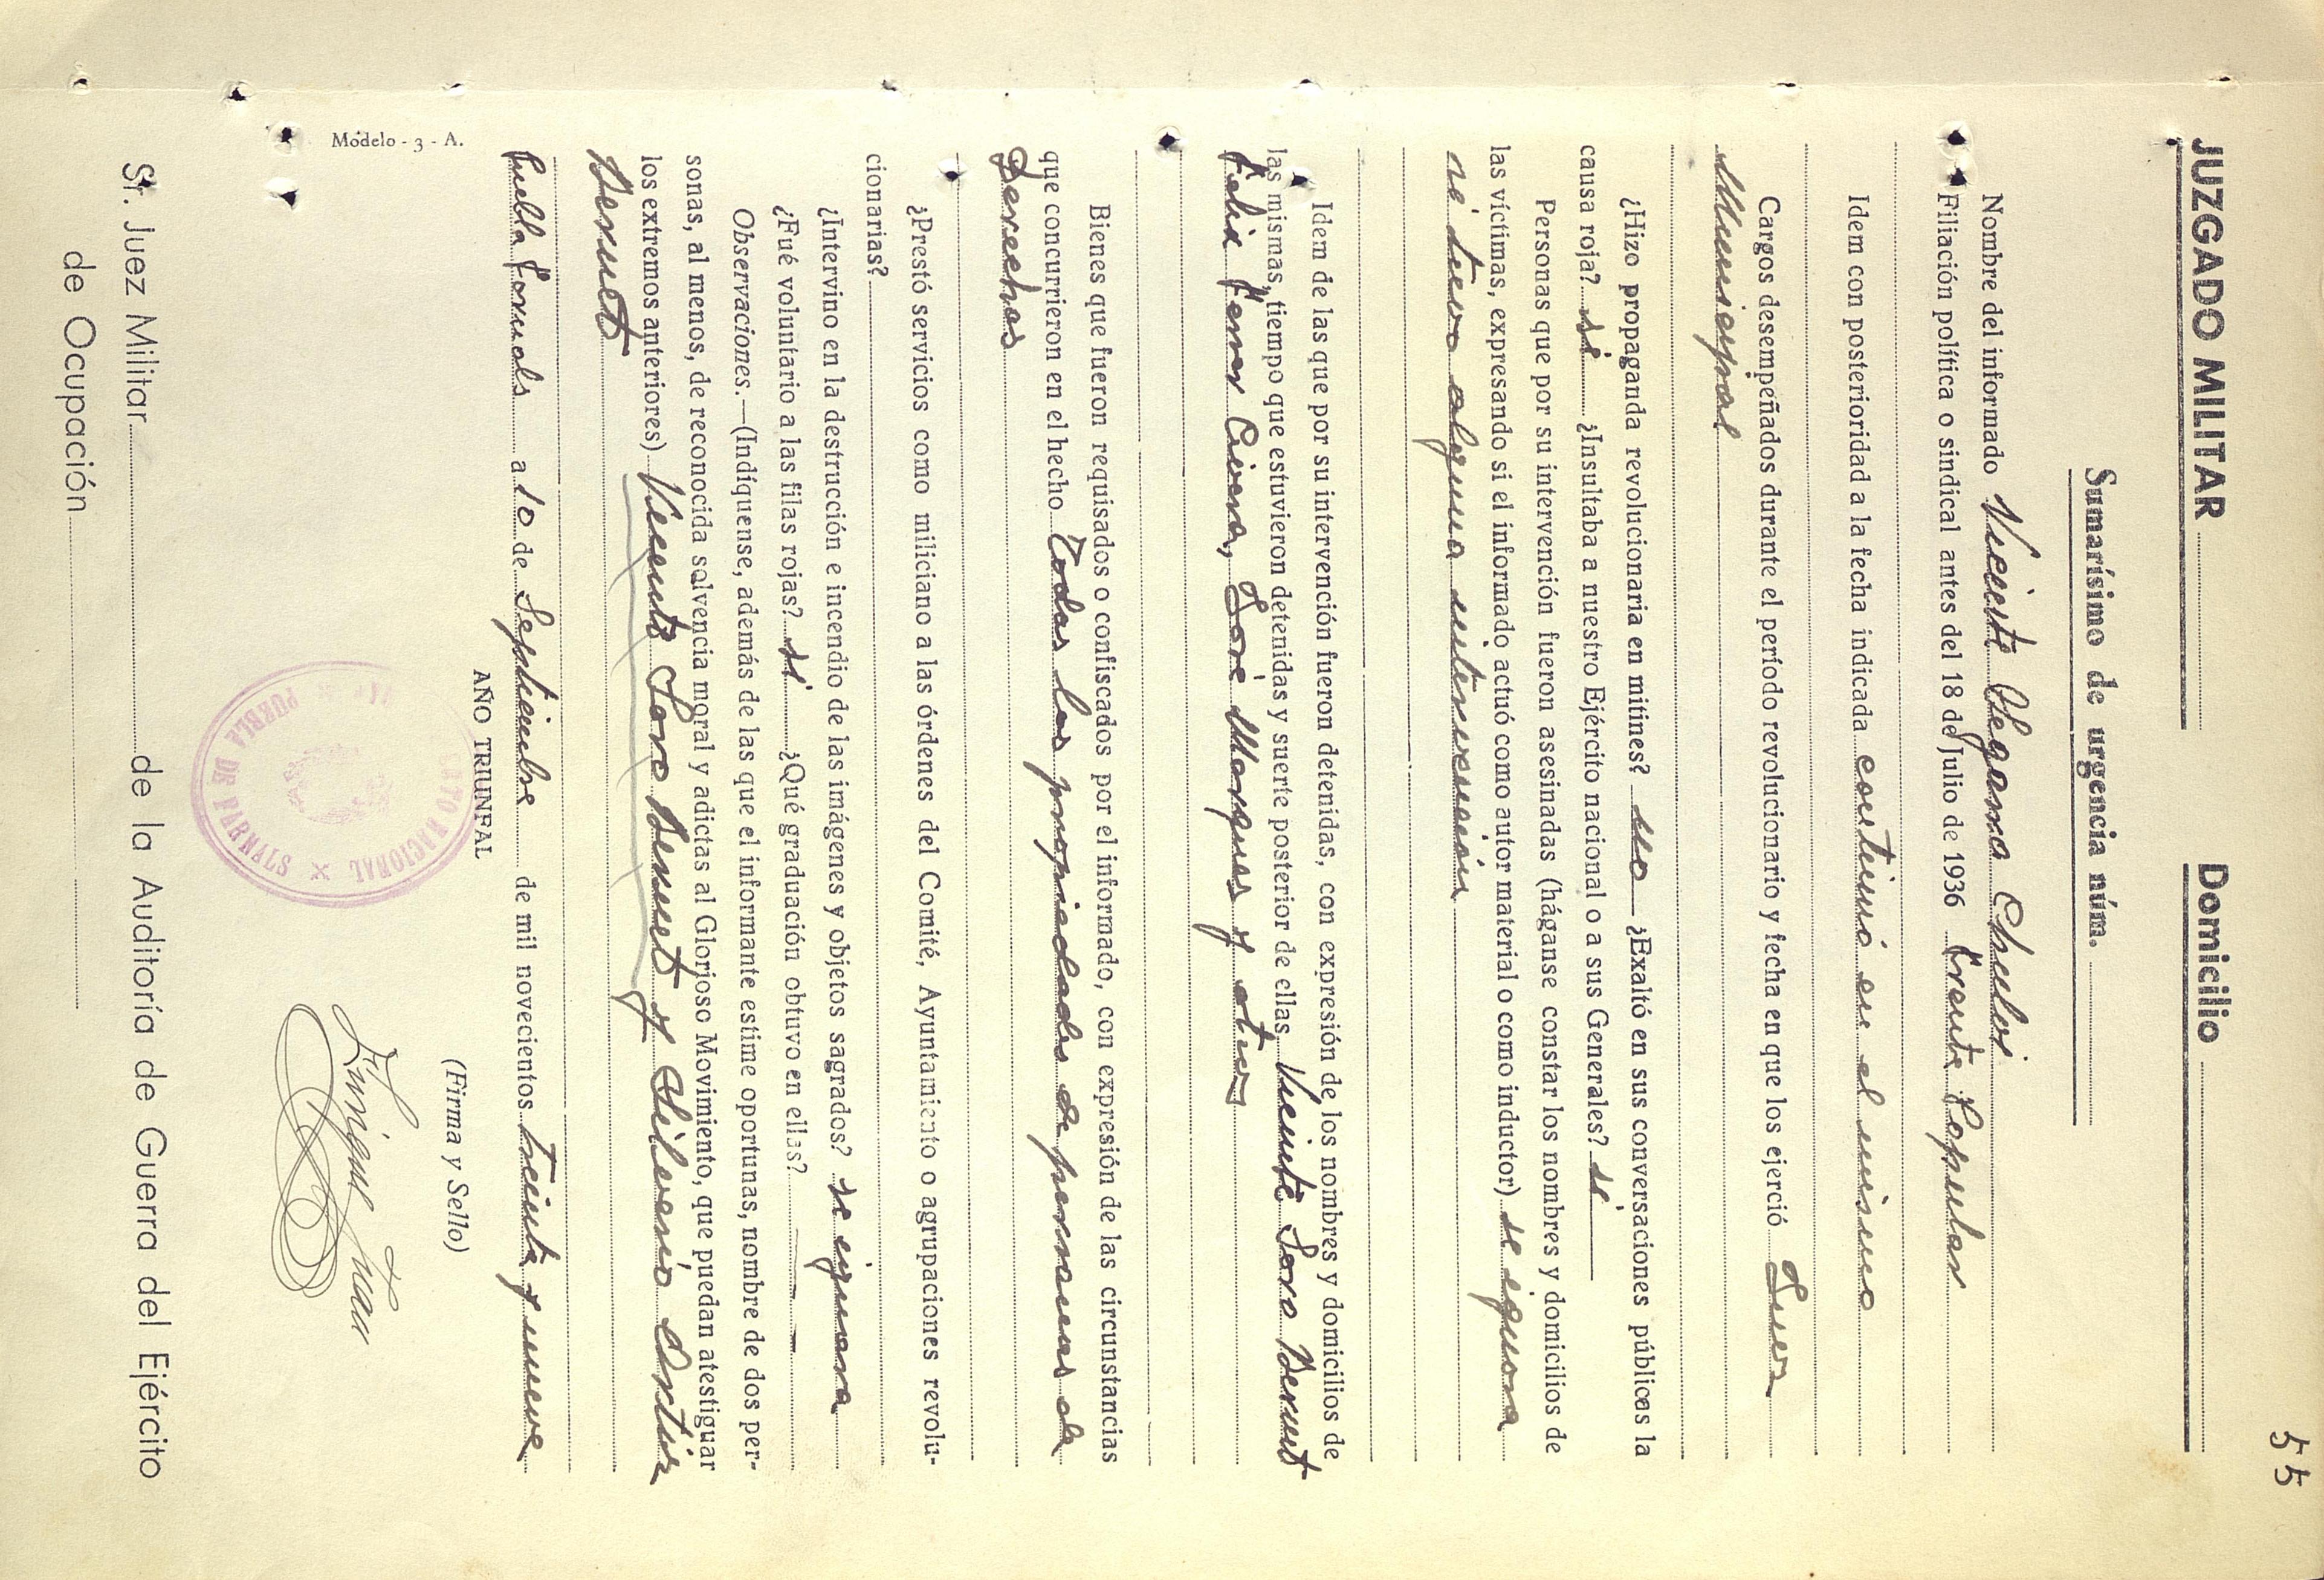 55
JUZGADO MILITAR Domicilio
Sumarísimo de urgencia núm.
Nombre del informado Vicente Segarra Chulvi
Filiación política o sindical antes del 18 de Julio de 1936 Frente Popular
Idem con posterioridad a la fecha indicada continuó en el mismo
Cargos desempeñados durante el período revolucionario y fecha en que los ejerció Juez
Municipal
¿Hizo propaganda revolucionaria en mitines? no ¿Exaltó en sus conversaciones públicas la
causa roja? si ¿Insultaba a nuestro Ejército nacional o a sus Generales? si
Personas que por su intervención fueron asesinadas (háganse constar los nombres y domicilios de
las víctimas, expresando si el informado actuó como autor material o como inductor) se ignora
si tuvo alguna intervención
Idem de las que por su intervención fueron detenidas, con expresión de los nombres y domicilios de
las mismas, tiempo que estuvieron detenidas y suerte posterior de ellas Vicente Soro Benut
Felix Ferrer Civera, José Marques y otros
Bienes que fueron requisados o confiscados por el informado, con expresión de las circunstancias
que concurrieron en el hecho Todas las propiedades de personas de
Derechas
¿Prestó servicios como miliciano a las órdenes del Comité, Ayuntamiento o agrupaciones revolu-
cionarias?
¿Intervino en la destrucción e incendio de las imágenes y objetos sagrados? se ignora
¿Fué voluntario a las filas rojas? si ¿Qué graduación obtuvo en ellas?
Observaciones.—(Indíquense, además de las que el informante estime oportunas, nombre de dos per-
sonas, al menos, de reconocida solvencia moral y adictas al Glorioso Movimiento, que puedan atestiguar
los extremos anteriores) Vicente Soro Benut y Silverio
Benut
Puebla Fornals a 10 de Septiembre de mil novecientos treinta y nueve
AÑO TRIUNFAL
(Firma y Sello)
Enrique Juan
NACIONAL
PUEBLA DE FARNALS
Modelo - 3 - A.
Sr. Juez Militar de la Auditoría de Guerra del Ejército
de Ocupación